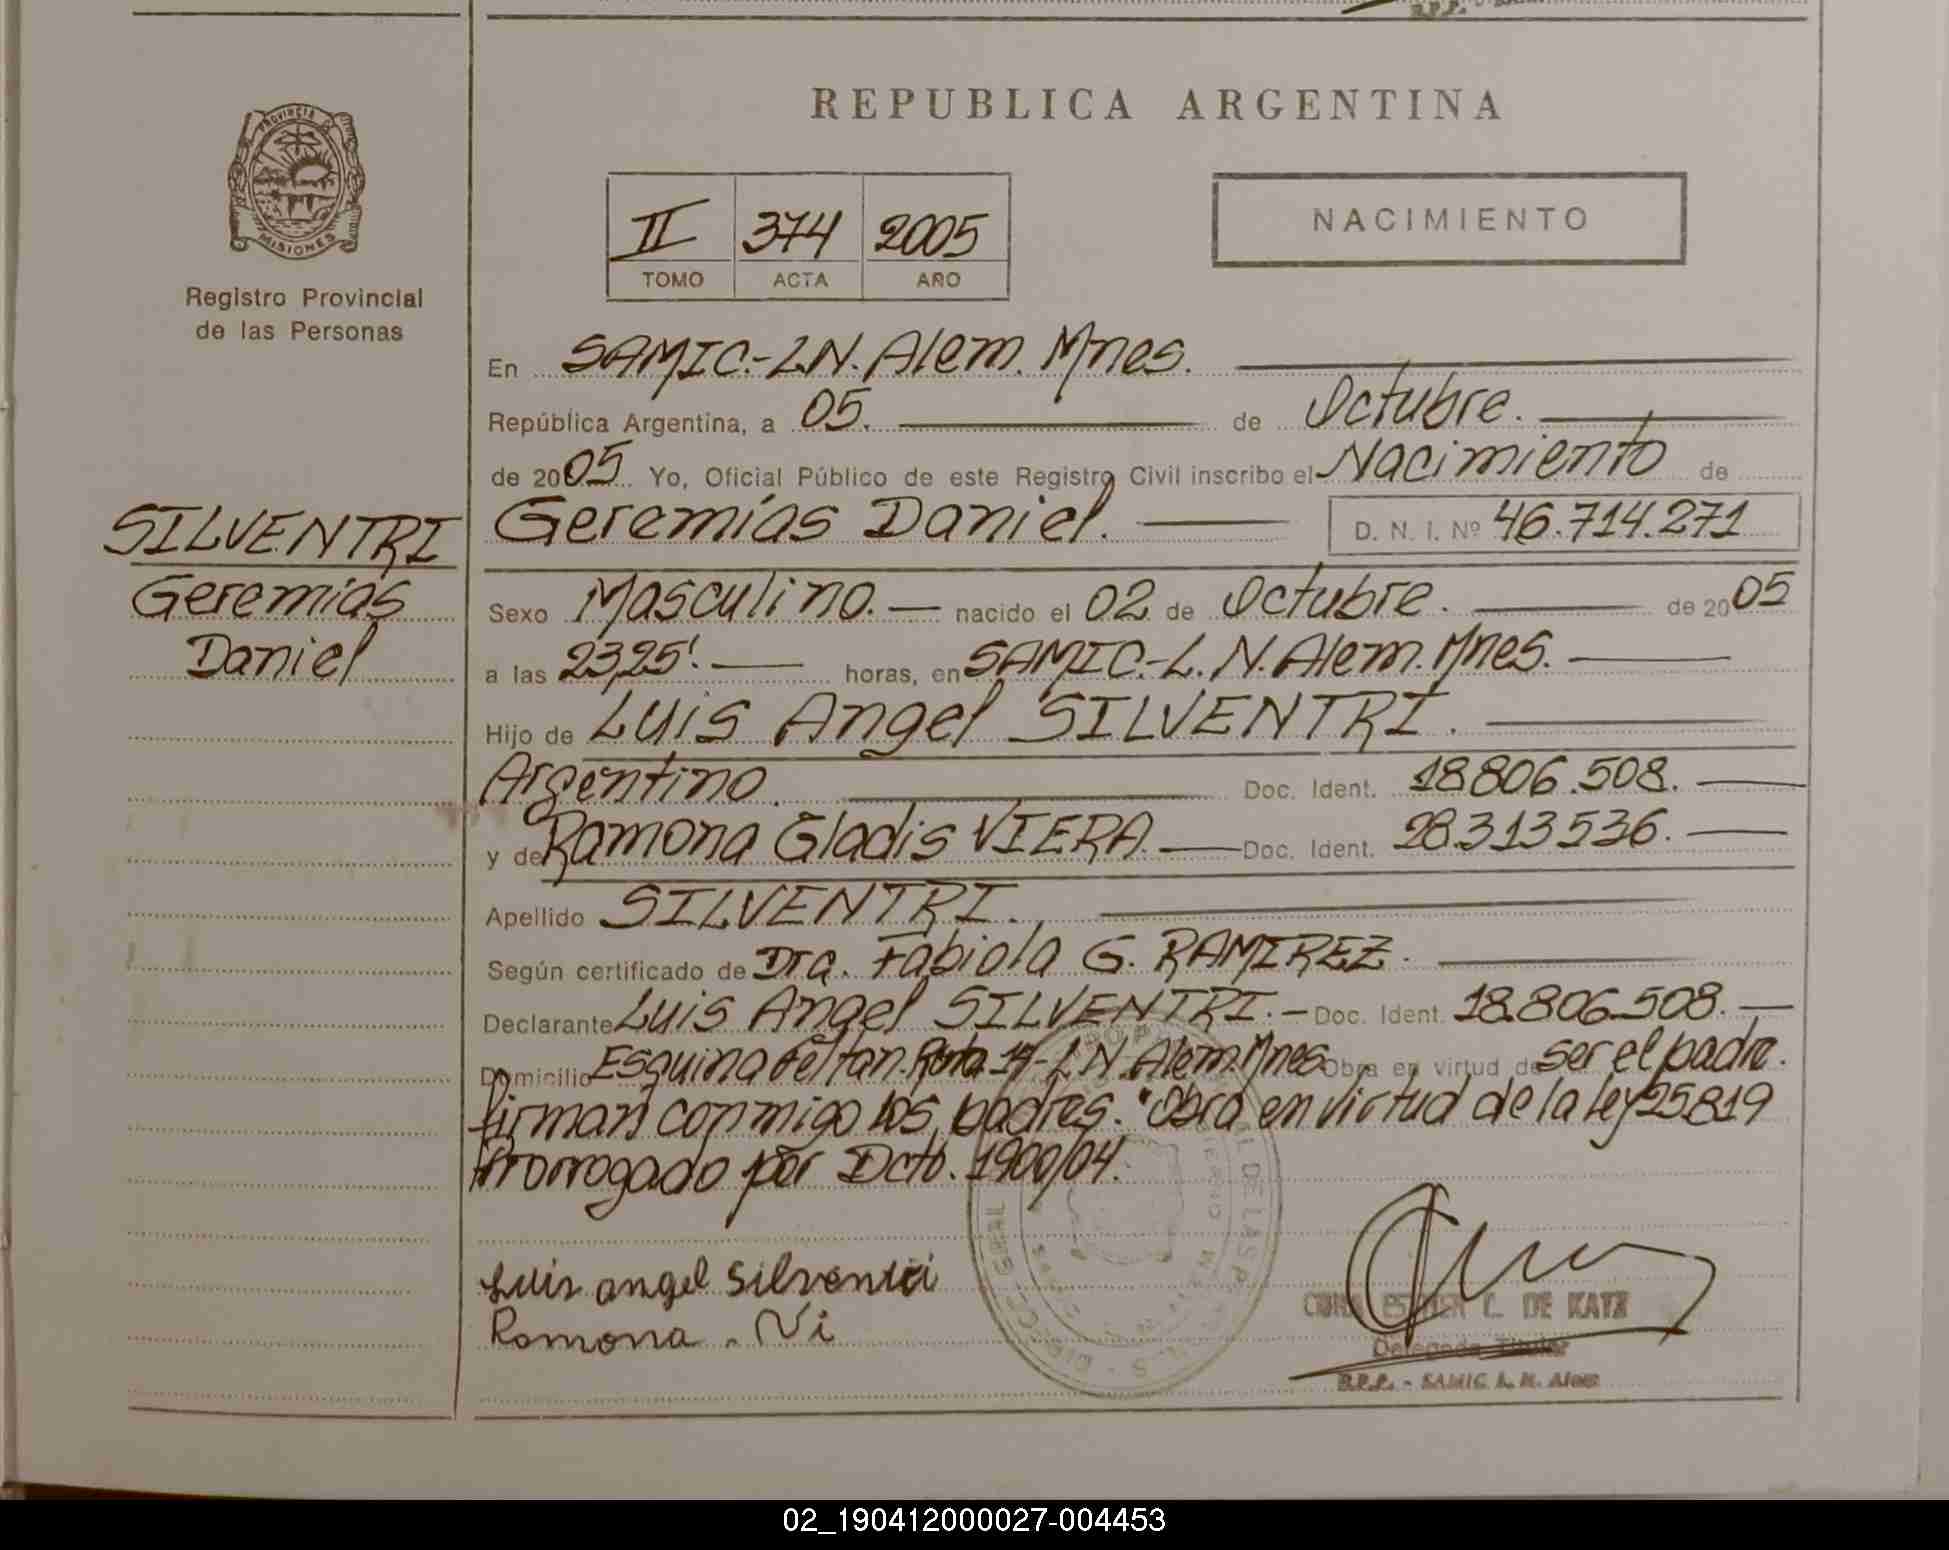 REPUBLICA ARGENTINA
PROVINCIA DE
MISIONES
Registro Provincial
de las Personas
II 374 2005
TOMO ACTA AÑO
NACIMIENTO
En SAMIC.-L.N. Alem. Mnes.
República Argentina, a 05. de Octubre.
de 2005 Yo, Oficial Público de este Registro Civil inscribo el Nacimiento de
SILVENTRI
Geremías
Daniel
Geremías Daniel. D. N. I. Nº 46.714.271
Sexo Masculino. nacido el 02 de Octubre. de 2005
a las 23,25'. horas, en SAMIC.-L. N. Alem. Mnes.
Hijo de Luis Angel SILVENTRI.
Argentino. Doc. Ident. 18.806.508.
y de Ramona Gladis VIERA. Doc. Ident. 28.313.536.
Apellido SILVENTRI.
Según certificado de Dra. Fabiola G. RAMIREZ.
Declarante Luis Angel SILVENTRI.- Doc. Ident. 18.806.508.
Domicilio Esquina Feltan. Ruta 14-L N. Alem. Mnes Obra en virtud de ser el padre.
firman conmigo los padres. "Obra en virtud de la ley 25.819
Prorrogado por Dcto. 1900/04.
Luis angel Silventri
Ramona . Vi
ESTHER C. DE KATZ
Delegada Titular
R.P.P. - SAMIC L. N. Alem
02_190412000027-004453